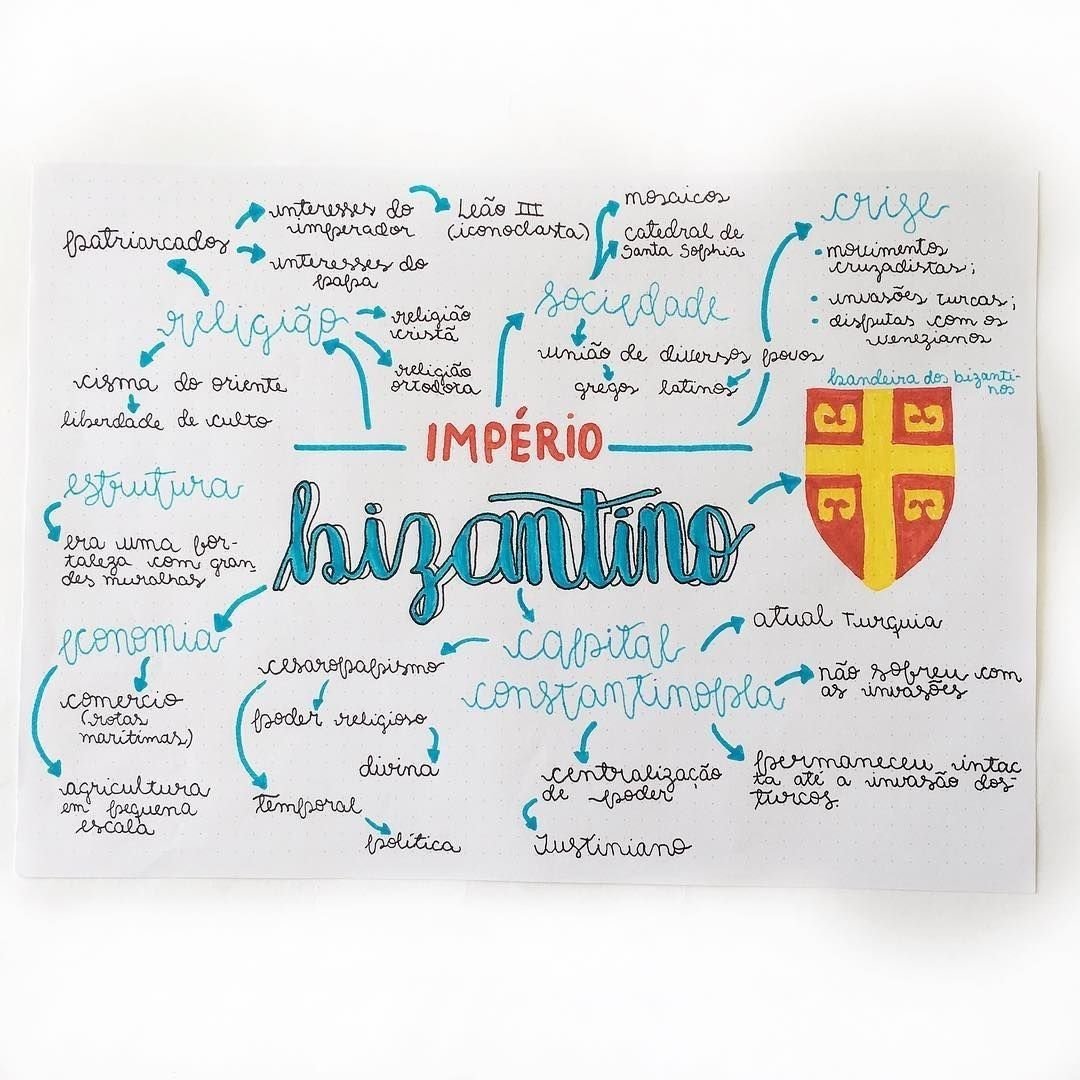 patriarcados
interesses do
imperador
Leão III
(iconoclasta)
interesses do
papa
religião
religião
cristã
religião
ortodoxa
cisma do oriente
liberdade de culto
sociedade
mosaicos
catedral de
Santa Sophia
união de diversos povos
gregos latinos
crise
• movimentos
cruzadistas;
• invasões turcas;
• disputas com os
venezianos
bandeira dos bizanti-
nos
IMPÉRIO
bizantino
estrutura
era uma for-
taleza com gran
des muralhas
economia
comercio
(rotas
marítimas)
agricultura
em pequena
escala
capital
constantinopla
cesaropapismo
poder religioso
divina
temporal
política
atual Turquia
não sofreu com
as invasões
centralização
de poder
Justiniano
permaneceu intac
ta até a invasão dos
turcos.